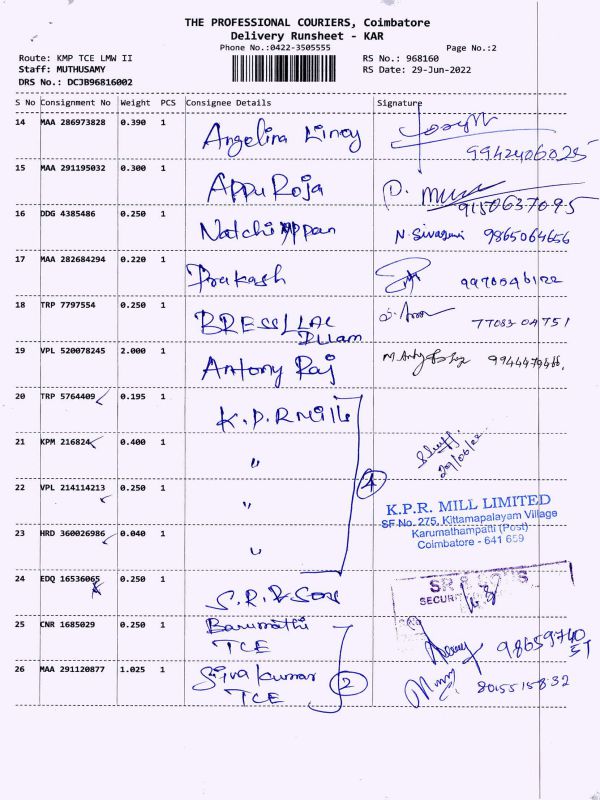 THE PROFESSIONAL COURIERS, Coimbatore
Delivery Runsheet - KAR
Phone No.:0422-3505555
Page No.:2
Route: KMP TCE LMW II
RS No.: 968160
Staff: MUTHUSAMY
RS Date: 29-Jun-2022
DRS No.: DCJB96816002
S No Consignment No Weight PCS Consignee Details Signature
14 MAA 286973828 0.390 1 Angelina Liney
9942406025
15 MAA 291195032 0.300 1 Appu Roja
9150637095
16 DDG 4385486 0.250 1 Natchiappan N. Sivagami 9865064656
17 MAA 282684294 0.220 1 Prakash
18 TRP 7797554 0.250 1 BRESSLLAC
77083 04751
19 VPL 520078245 2.000 1 Antony Raj
20 TRP 5764409 0.195 1 K.P.R Mills
21 KPM 216824 0.400 1 "
29/06/22
22 VPL 214114213 0.250 1 "
4
K.P.R. MILL LIMITED
SF No. 275, Kittamapalayam Village
23 HRD 360026986 0.040 1 "
Karumathampatti (Post)
Coimbatore - 641 659
24 EDQ 16536065 0.250 1 S.R. & Sons
SECURI
25 CNR 1685029 0.250 1 Barumathi
TCE
98659740
51
26 MAA 291120877 1.025 1 Siva kumar
TCE
2
8015515832